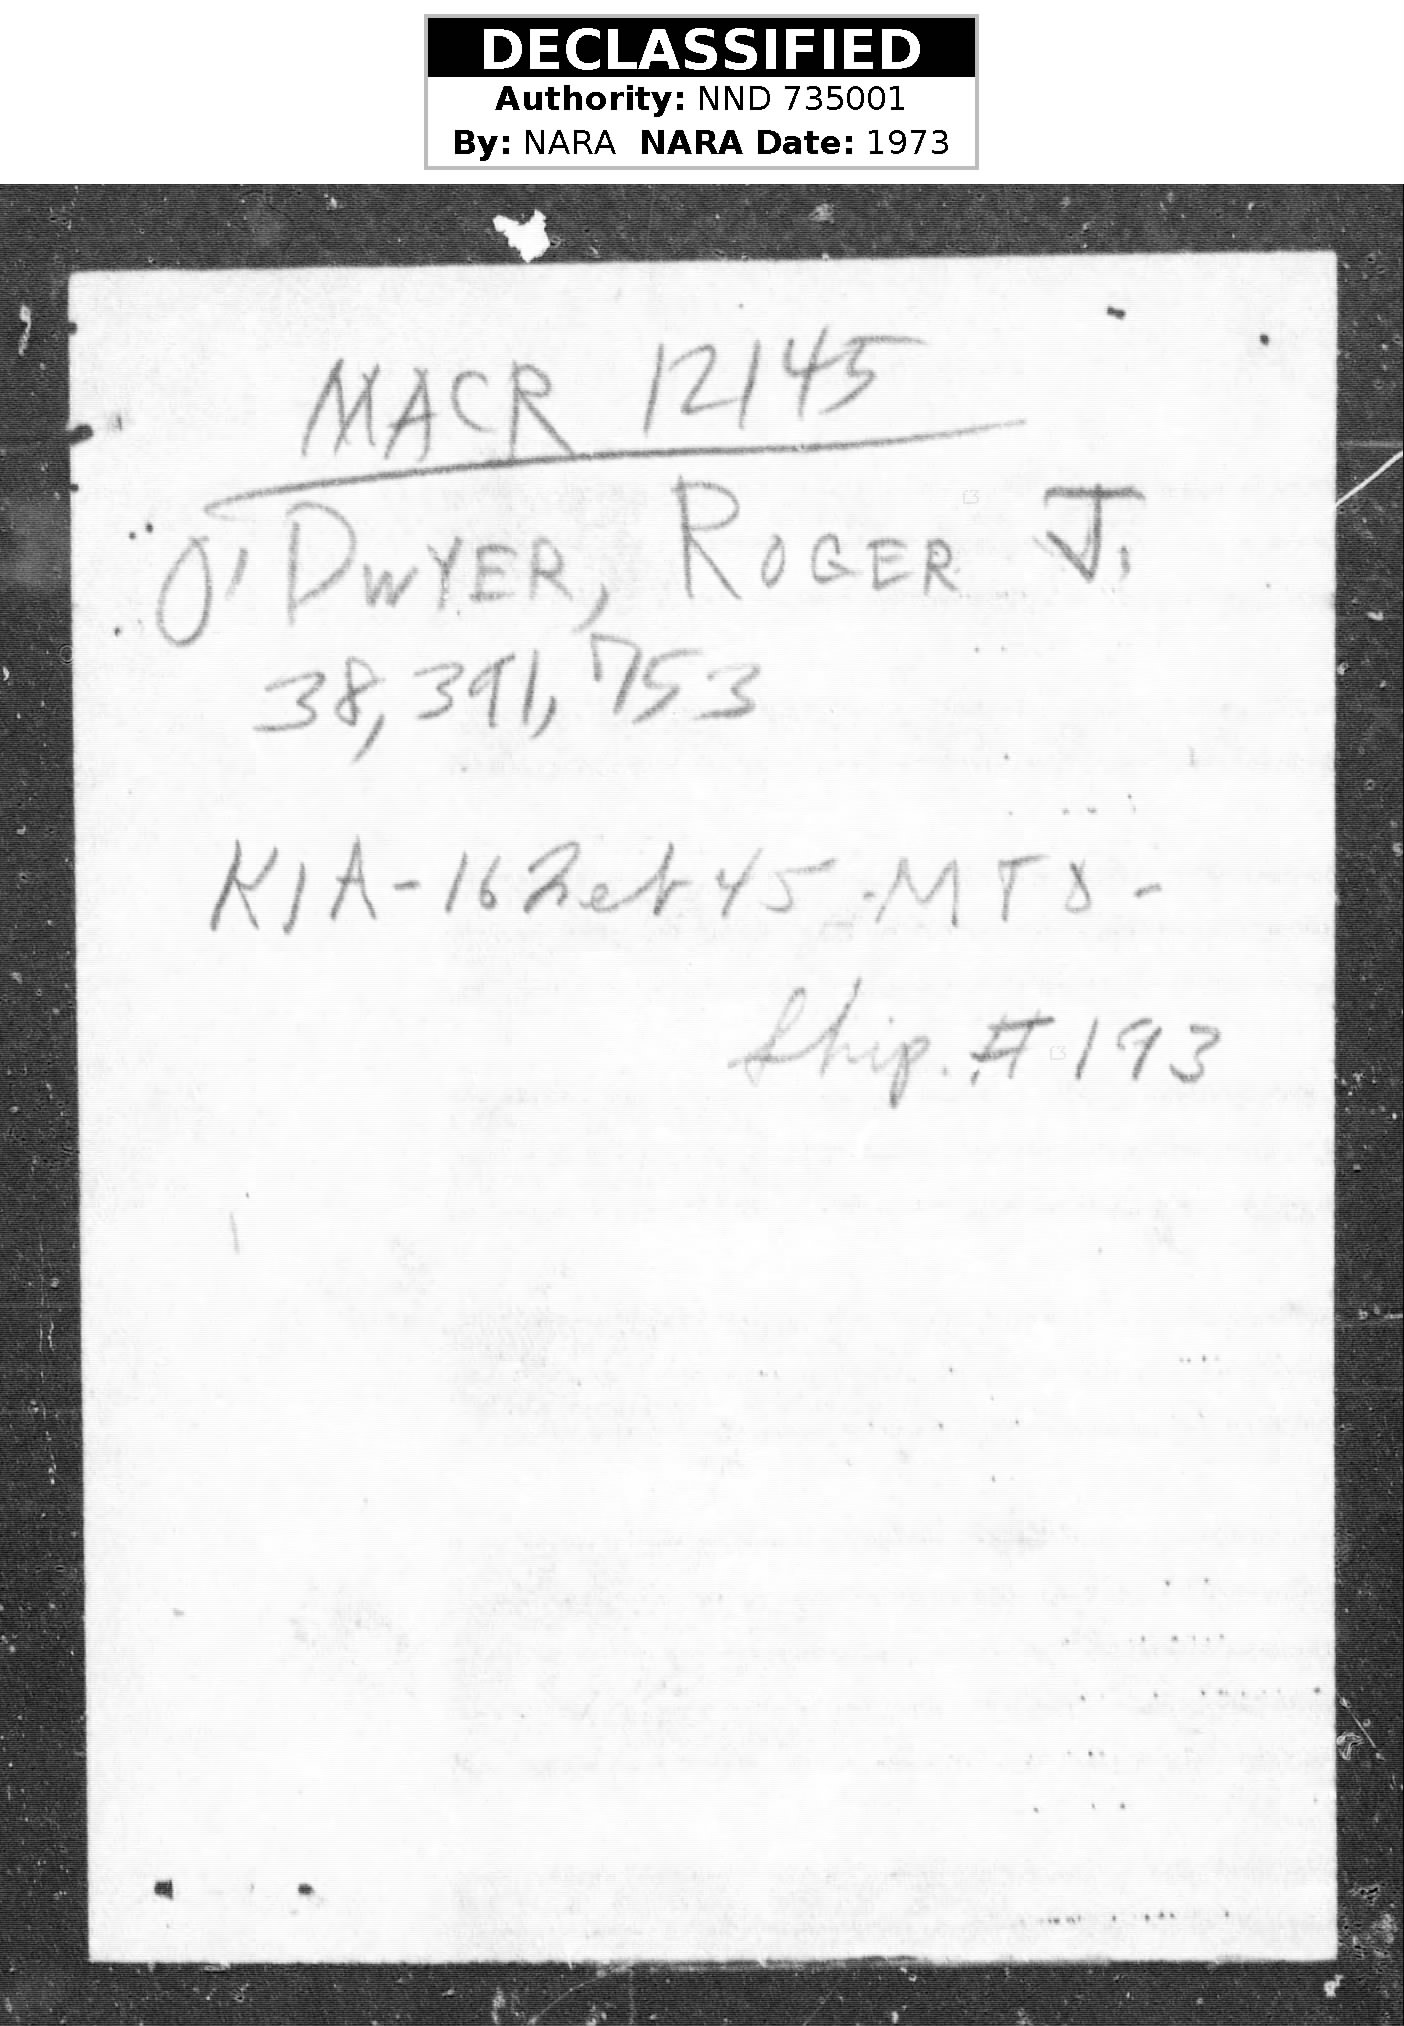 DECLASSIFIED
Authority: NND 735001
By: NARA NARA Date: 1973
MACR 12145
O'DWYER, ROGER J.
38,391,753
KIA-16 Feb 45-MTO-
Ship. #193